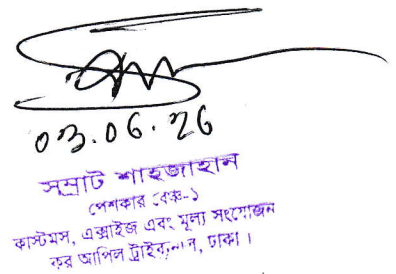 03.06.26
সম্রাট শাহজাহান
পেশকার বেঞ্চ-১
কাস্টমস, এক্সাইজ এবং মূল্য সংযোজন
কর আপিল ট্রাইব্যুনাল, ঢাকা।